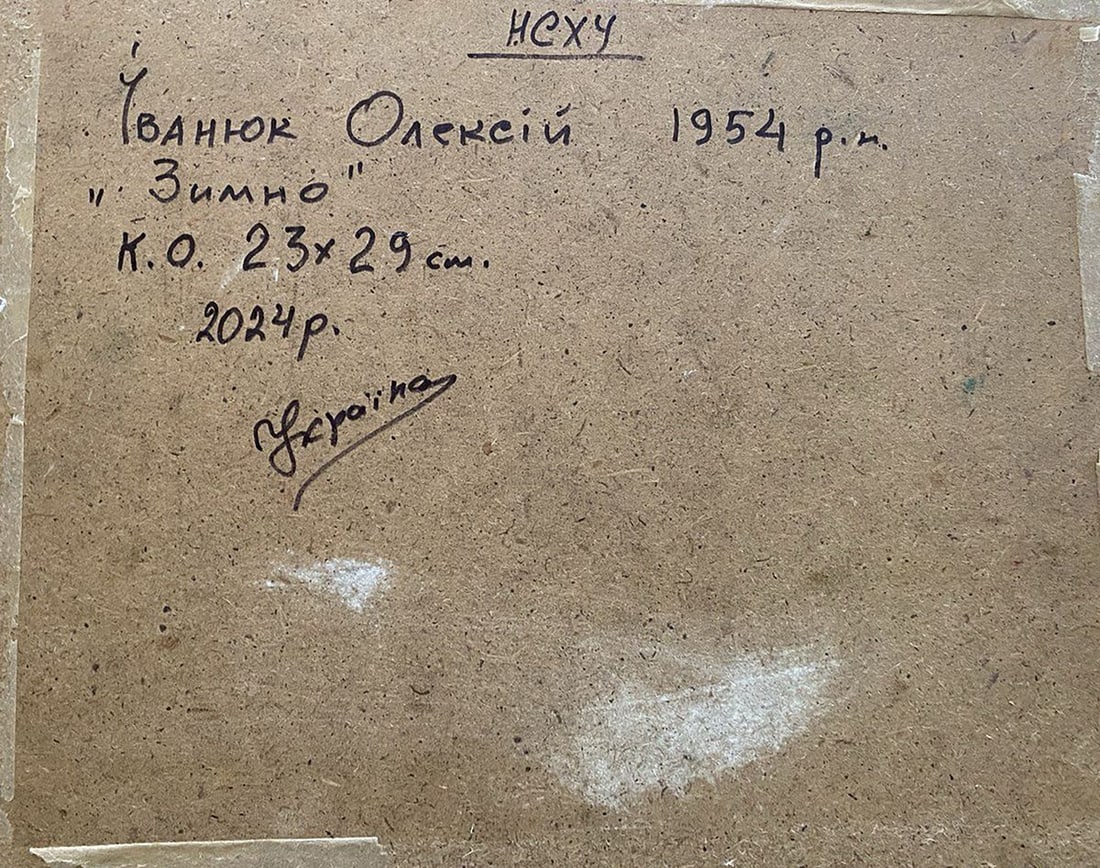 НСХУ
Іванюк Олексій 1954 р.н.
„Зимно"
К.О. 23х29 см.
2024р.
Україна